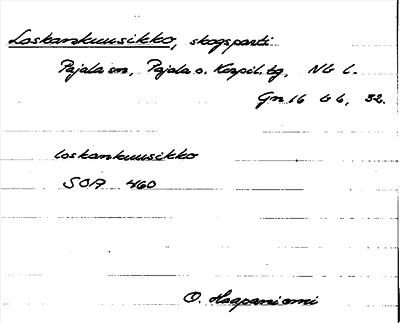 Laskankuusikko, skogsparti
Pajala sn, Pajala o. Korpil. tg, Nb l.
Gn 16 b 6, 32.
laskankuusikko
SOA 460
O. Haapaniemi